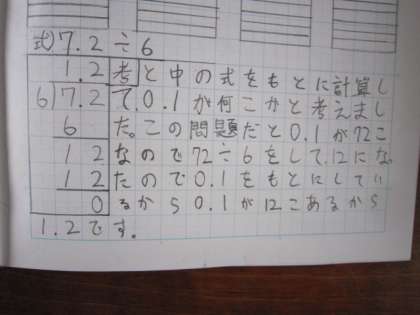 式)7.2÷6
1.2 考と中の式をもとに計算し
6)7.2 て、0.1が何こかと考えまし
6 た。この問題だと0.1が72こ
12 なので72÷6をして、12にな
12 たので0.1をもとにしてい
0 るから0.1が12こあるから
1.2です。